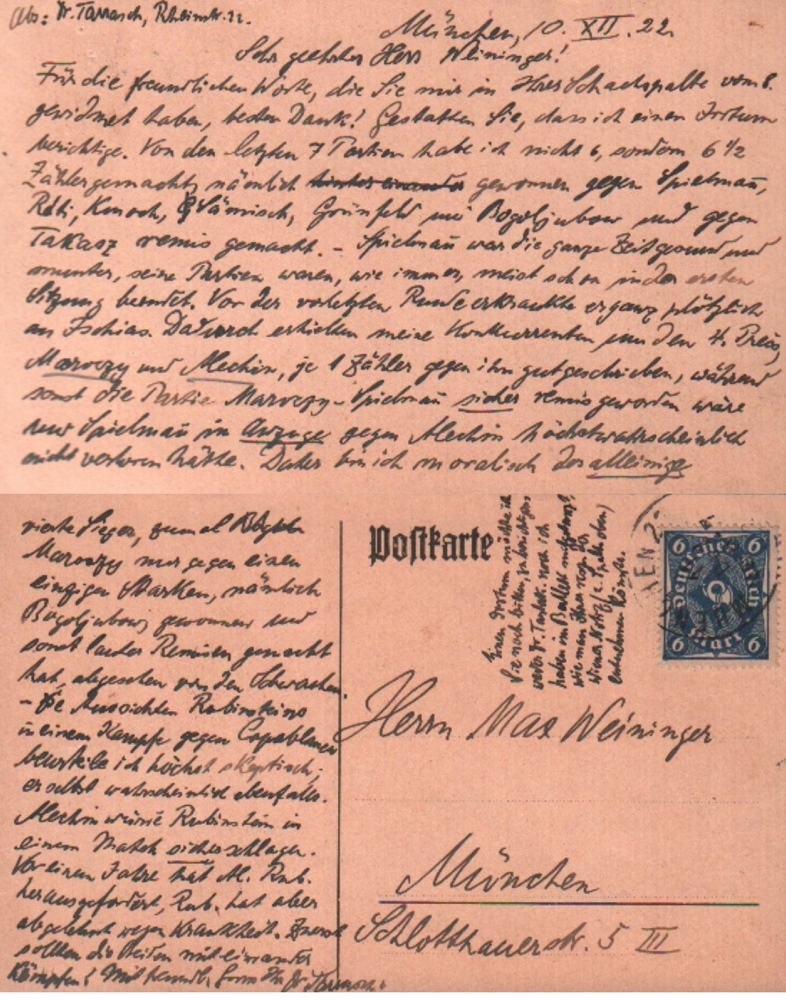 Abs: Dr. Tarrasch, Rheinstr. 22.
München, 10. XII. 22
Sehr geehrter Herr Weininger!
Für die freundlichen Worte, die Sie mir in Ihrer Schachspalte vom 8.
gewidmet haben, besten Dank! Gestatten Sie, dass ich einen Irrtum
berichtige. Von den letzten 7 Partien habe ich nicht 6, sondern 6 1/2
Zähler gemacht, nämlich gewonnen gegen Spielmañ,
Réti, Kmoch, Sämisch, Grünfeld und Bogoljubow und gegen
Takasz remis gemacht. – Spielmañ war die ganze Zeit gesund und
munter, seine Partien waren, wie immer, meist schon in der ersten
Sitzung beendet. Vor der vorletzten Runde erkrankte er ganz plötzlich
an Ischias. Dadurch erhielten meine Konkurrenten um den 4. Preis,
Maroczy und Alechin, je 1 Zähler gegen ihn gutgeschrieben, während
sonst die Partie Maroczy–Spielmañ sicher remis geworden wäre
und Spielmañ im Anzuge gegen Alechin höchstwahrscheinlich
nicht verloren hätte. Daher bin ich moralisch der alleinige
vierte Sieger, zumal
Maroczy nur gegen einen
einzigen Starken, nämlich
Bogoljubow, gewonnen und
sonst lauter Remisen gemacht
hat, abgesehen von den Schwachen.
– Die Aussichten Rubinsteins
in einem Kampfe gegen Capablanca
beurteile ich höchst skeptisch;
er selbst wahrscheinlich ebenfalls.
Alechin würde Rubinstein in
einem Match sicher schlagen.
Vor einem Jahre hat Al. Rub.
herausgefordert, Rub. hat aber
abgelehnt wegen Krankheit. Zuerst
sollten die Beiden mit einander
kämpfen! Mit freundl. Gruss Ihr Dr. Tarrasch.
Postkarte
Einen Irrtum möchte ich
Sie noch bitten, zu berichtigen:
weder Dr. Tartak. noch ich
haben im Ballett mitgetanzt,
wie man Ihrer
Wiener Notiz (2. Spalte oben)
entnehmen könnte.
6 6
Deutsches Reich
Mark
6 6
Herrn Max Weininger
München
Schlotthauerstr. 5 III